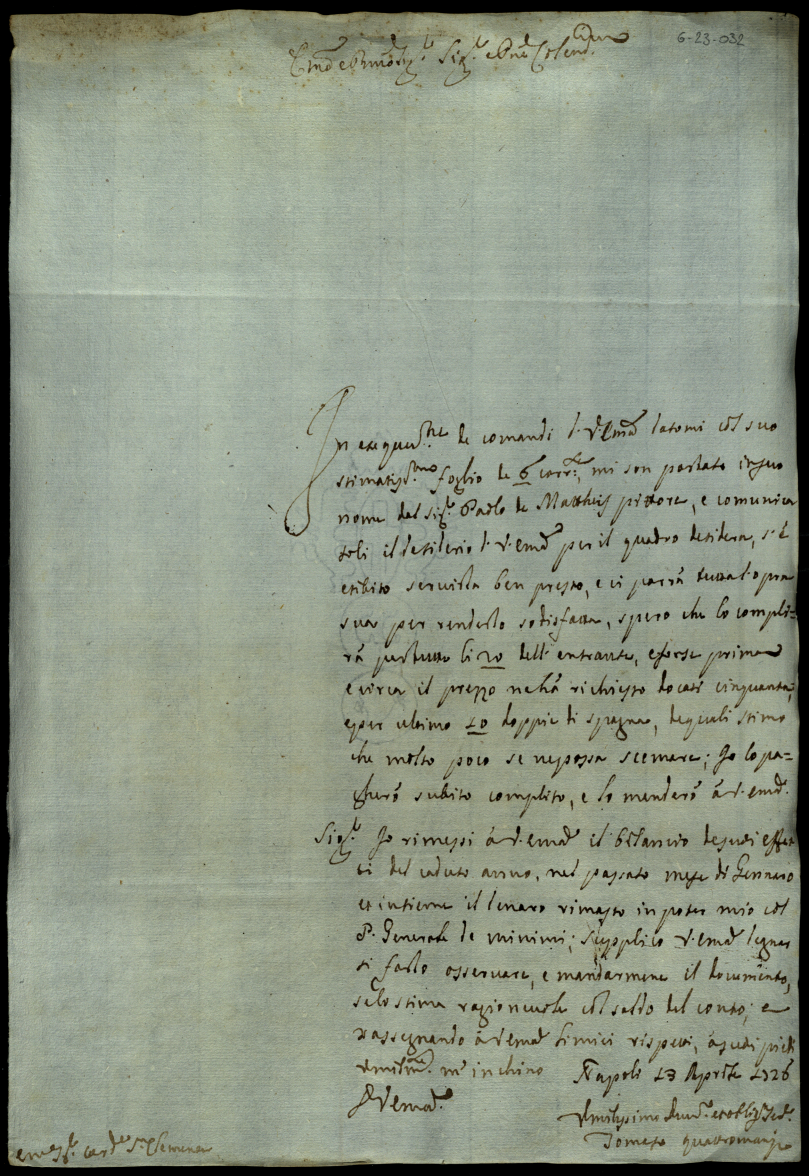 6-23-032
Em.o e R.mo Sig.r Sig.r e P.ne Col.mo
In esequut.ne de comandi di V. Em.a datomi col suo
stimatiss.mo foglio de 6 corr.te, mi son portato in suo
nome dal Sig.r Paolo de Mattheis pittore, e comunica
toli il desiderio di V. Em.a per il quadro desidera, s'è
esibito servirla ben presto, e vi porrà tutta l'opra
sua per renderlo sodisfatta, spero che lo compli=
rà per tutto li 20 dell'entrante, e forse prima
e circa il prezzo ne hà richiesto docati cinquanta,
e per ultimo 10 doppie di spagna, de quali stimo
che molto poco se ne possa scemare; Io lo pa=
gherò subito complito, e lo manderò à V. Em.a
Sig.r Io rimessi à V. Em.a il bilancio de suoi effet
ti del caduto anno, nel passato mese di Gennaro
et insieme il denaro rimasto in poter mio col
P. Generale de minimi; supplico V. Em.a degnar
si farlo osservare, e mandarmene il documento,
se lo stima ragionevole col saldo del conto; e
rassegnando à V. Em.a li miei rispetti, à suoi piedi
umilm.te m'inchino Napoli 13 Aprile 1726
D. V. Em.a
Umilissimo Ser.
Tomaso quattromani
em.o Sig.r Card.e S. Clemente